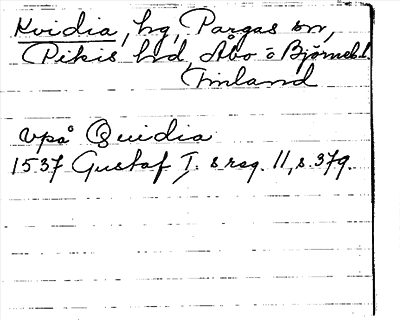 Kvidia, hg, Pargas sn,
Pikis hd, Åbo o Björneb. l.
Finland
vpå Quidia
1537 Gustaf I. s reg. 11, s. 379.